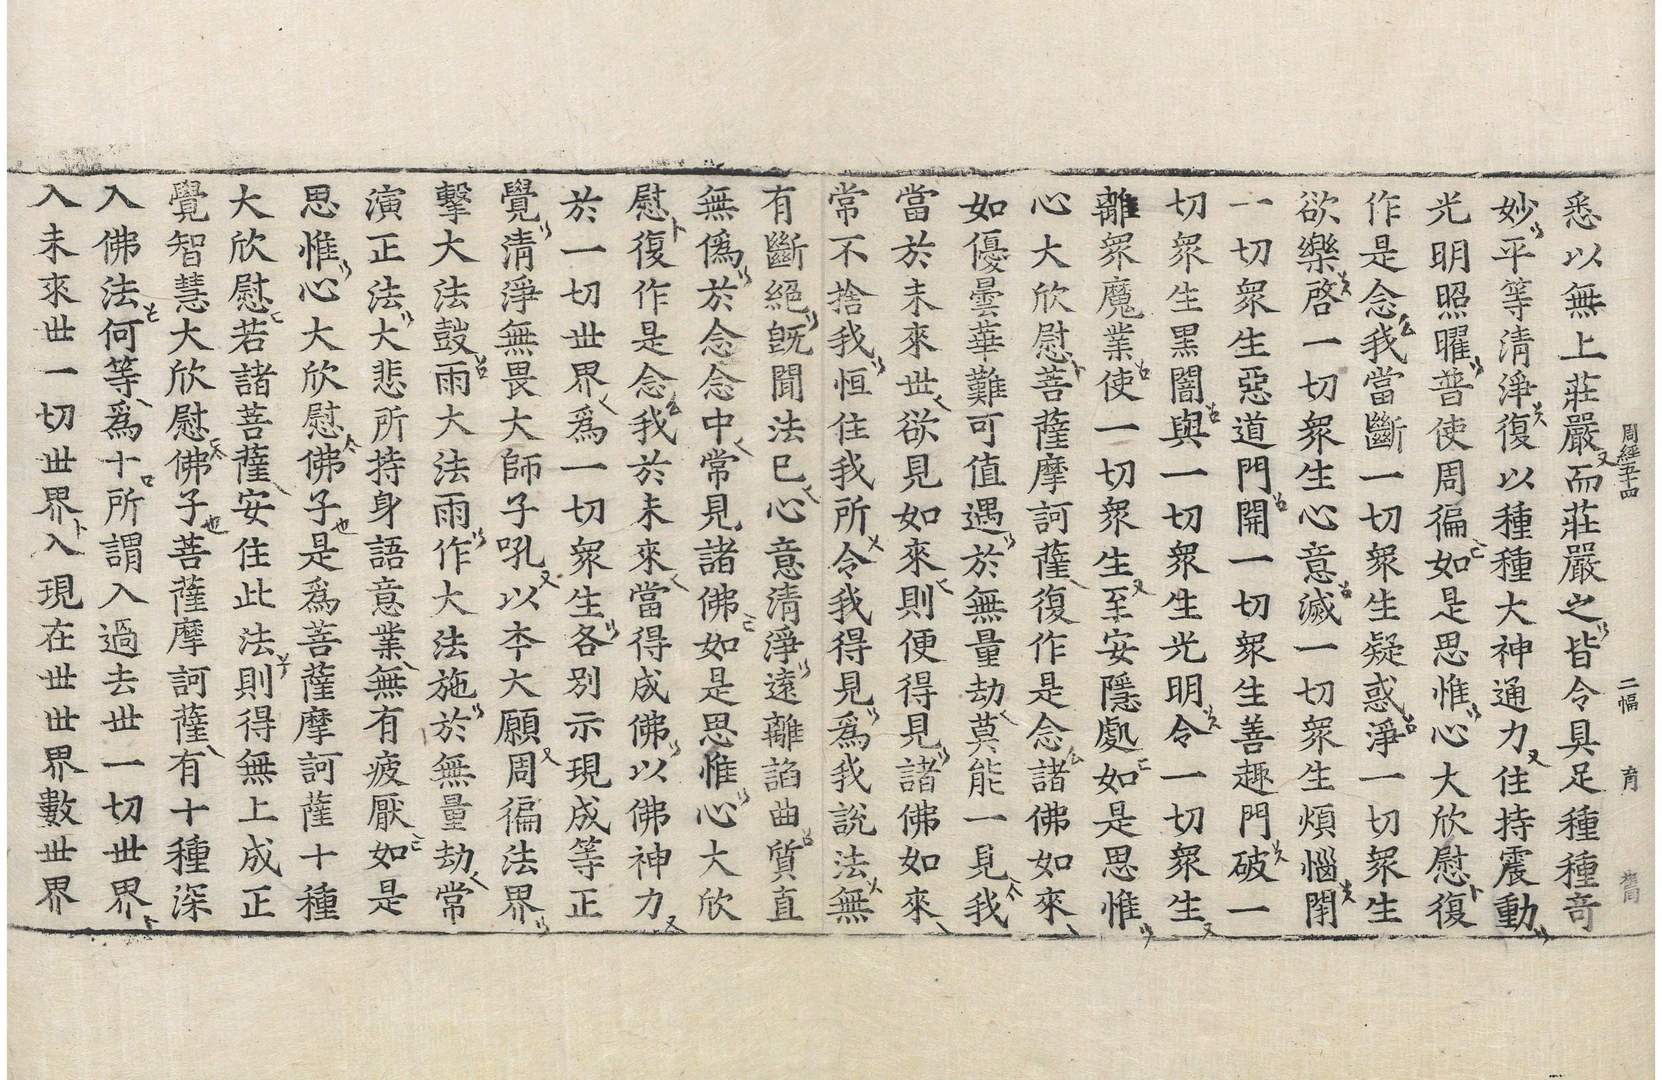 周經五十四 二幅 育
悉以無上莊嚴而莊嚴之皆令具足種種奇
妙平等清淨復以種種大神通力住持震動
光明照曜普使周徧如是思惟心大欣慰復
作是念我當斷一切衆生疑惑淨一切衆生
欲樂啓一切衆生心意滅一切衆生煩惱閉
一切衆生惡道門開一切衆生善趣門破一
切衆生黑闇與一切衆生光明令一切衆生
離衆魔業使一切衆生至安隱處如是思惟
心大欣慰菩薩摩訶薩復作是念諸佛如來
如優曇華難可值遇於無量劫莫能一見我
當於未來世欲見如來則便得見諸佛如來
常不捨我恒住我所令我得見爲我說法無
有斷絕旣聞法已心意清淨遠離諂曲質直
無僞於念念中常見諸佛如是思惟心大欣
慰復作是念我於未來當得成佛以佛神力
於一切世界爲一切衆生各別示現成等正
覺清淨無畏大師子吼以本大願周徧法界
擊大法鼓雨大法雨作大法施於無量劫常
演正法大悲所持身語意業無有疲厭如是
思惟心大欣慰佛子是爲菩薩摩訶薩十種
大欣慰若諸菩薩安住此法則得無上成正
覺智慧大欣慰佛子菩薩摩訶薩有十種深
入佛法何等爲十所謂入過去世一切世界
入未來世一切世界入現在世世界數世界